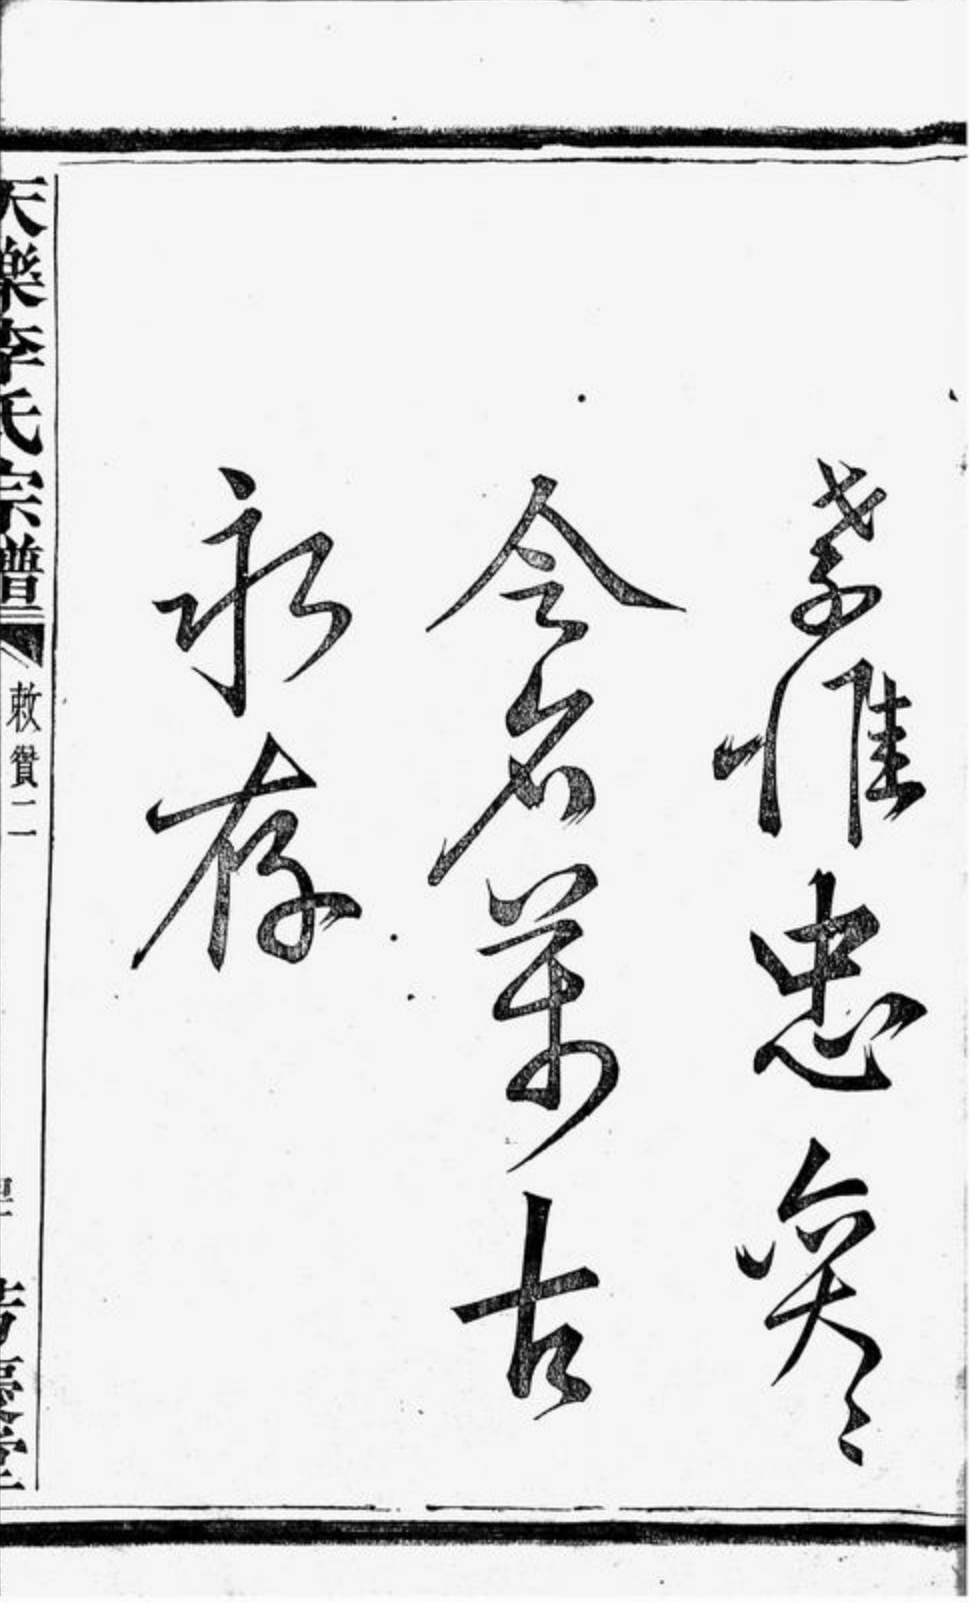 孝惟忠奕〻
令名萬古
永存
天樂李氏宗譜
敕贊二